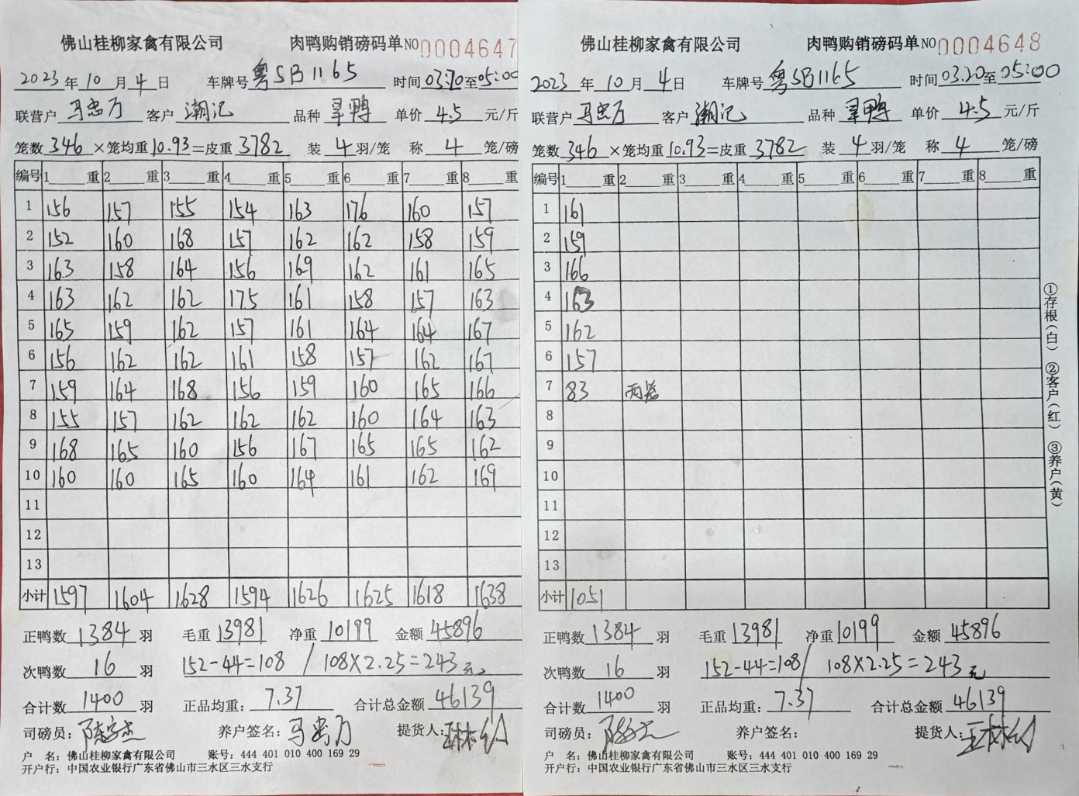 佛山桂柳家禽有限公司 肉鸭购销磅码单NO0004647
2023年10月4日 车牌号粤SB1165 时间03:20至05:00
联营户马忠万 客户潮记 品种旱鸭 单价4.5元/斤
笼数346×笼均重10.93=皮重3782 装4羽/笼 称4笼/磅
编号 1 重 2 重 3 重 4 重 5 重 6 重 7 重 8 重
1 156 157 155 154 163 176 160 157
2 152 160 168 157 162 162 158 159
3 163 158 164 156 169 162 161 165
4 163 162 162 175 161 158 157 163
5 165 159 162 157 161 164 164 167
6 156 162 162 161 158 157 162 167
7 159 164 168 156 159 160 165 166
8 155 157 162 162 162 160 164 163
9 168 165 160 156 167 165 165 162
10 160 160 165 160 164 161 162 169
11
12
13
小计 1597 1604 1628 1594 1626 1625 1618 1638
正鸭数1384羽 毛重13981 净重10199 金额45896
次鸭数16羽 152-44=108 / 108×2.25=243元
合计数1400羽 正品均重:7.37 合计总金额46139
司磅员: 养户签名:马忠万 提货人:
户 名:佛山桂柳家禽有限公司 账号:444 401 010 400 169 29
开户行:中国农业银行广东省佛山市三水区三水支行
佛山桂柳家禽有限公司 肉鸭购销磅码单NO0004648
2023年10月4日 车牌号粤SB1165 时间03.20至05:00
联营户马忠万 客户潮记 品种旱鸭 单价4.5元/斤
笼数346×笼均重10.93=皮重3782 装4羽/笼 称4笼/磅
编号 1 重 2 重 3 重 4 重 5 重 6 重 7 重 8 重
1 161
2 159
3 166
4 163
5 162
6 157
7 83 两笼
8
9
10
11
12
13
小计 1051
正鸭数1384羽 毛重13981 净重10199 金额45896
次鸭数16羽 152-44=108/ 108×2.25=243元
合计数1400羽 正品均重:7.37 合计总金额46139
司磅员: 养户签名: 提货人:
户 名:佛山桂柳家禽有限公司 账号:444 401 010 400 169 29
开户行:中国农业银行广东省佛山市三水区三水支行
①存根(白) ②客户(红) ③养户(黄)